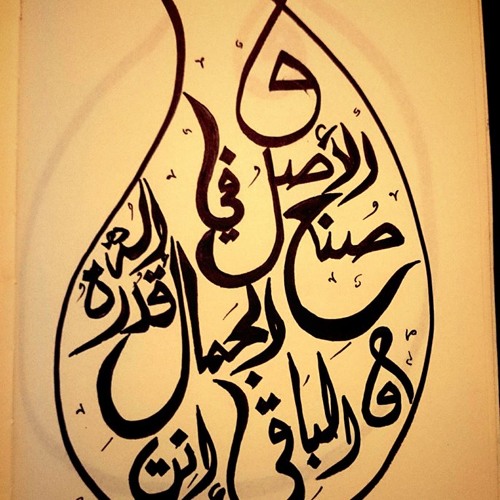 و
الأصل في
صنع الجمال
قدرة إله
و الباقي إنت